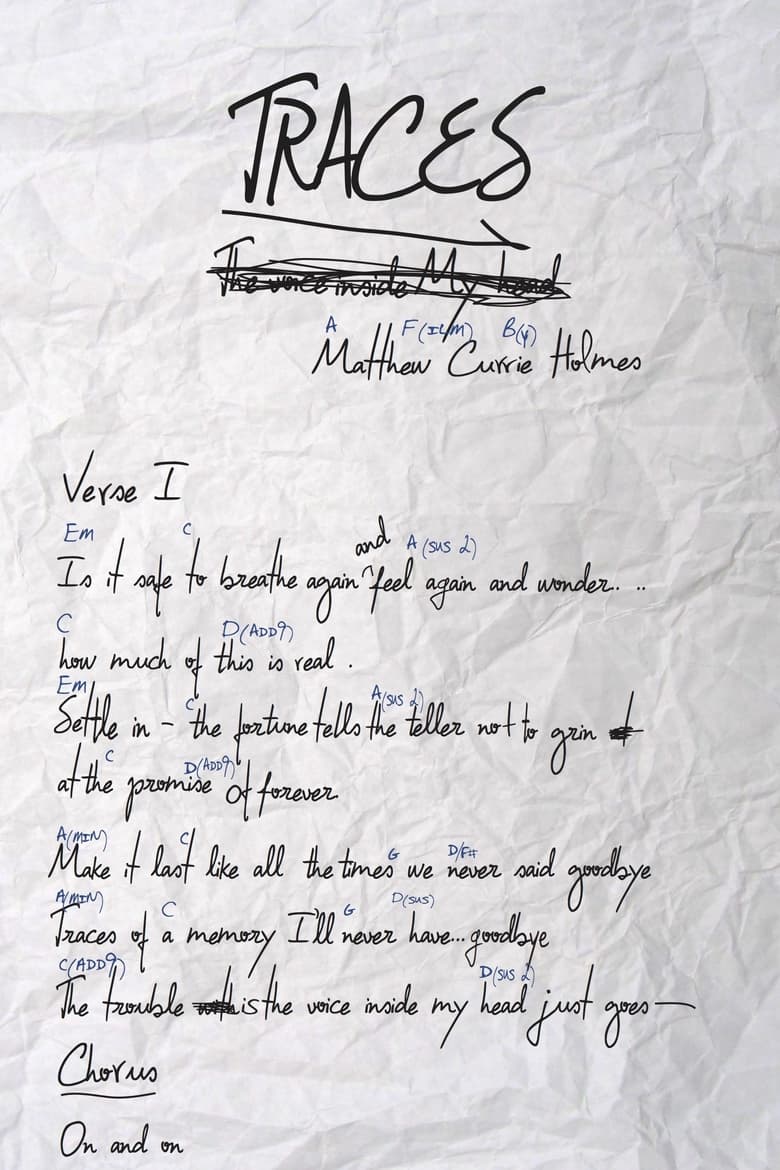 TRACES
The voice inside My head
A F(ILM) B(Y)
Matthew Currie Holmes
Verse I
Em C and A(SUS 2)
Is it safe to breathe again ^ feel again and wonder.. ..
C D(ADD9)
how much of this is real .
Em C A(SUS 2)
Settle in - the fortune tells the teller not to grin
C D(ADD9)
at the promise of forever.
A(MIN) C G D/F#
Make it last like all the times we never said goodbye
A(MIN) C G D(SUS)
Traces of a memory I'll never have... goodbye
C(ADD9) D(SUS 2)
The trouble is the voice inside my head just goes—
Chorus
On and on